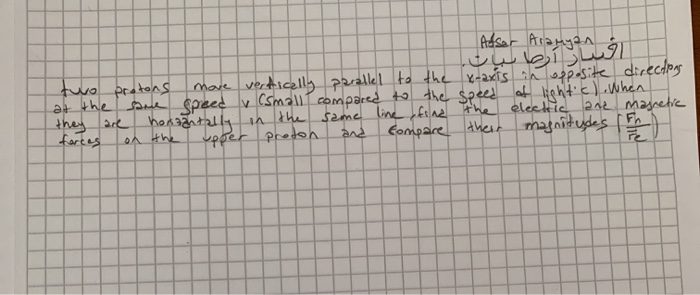 Adsar Aramyan
two protons move vertically parallel to the x-axis in opposite directions
at the same speed v (small compared to the speed of light c). When
they are horizontally in the same line, find the electric and magnetic
forces on the upper proton and compare their magnitudes